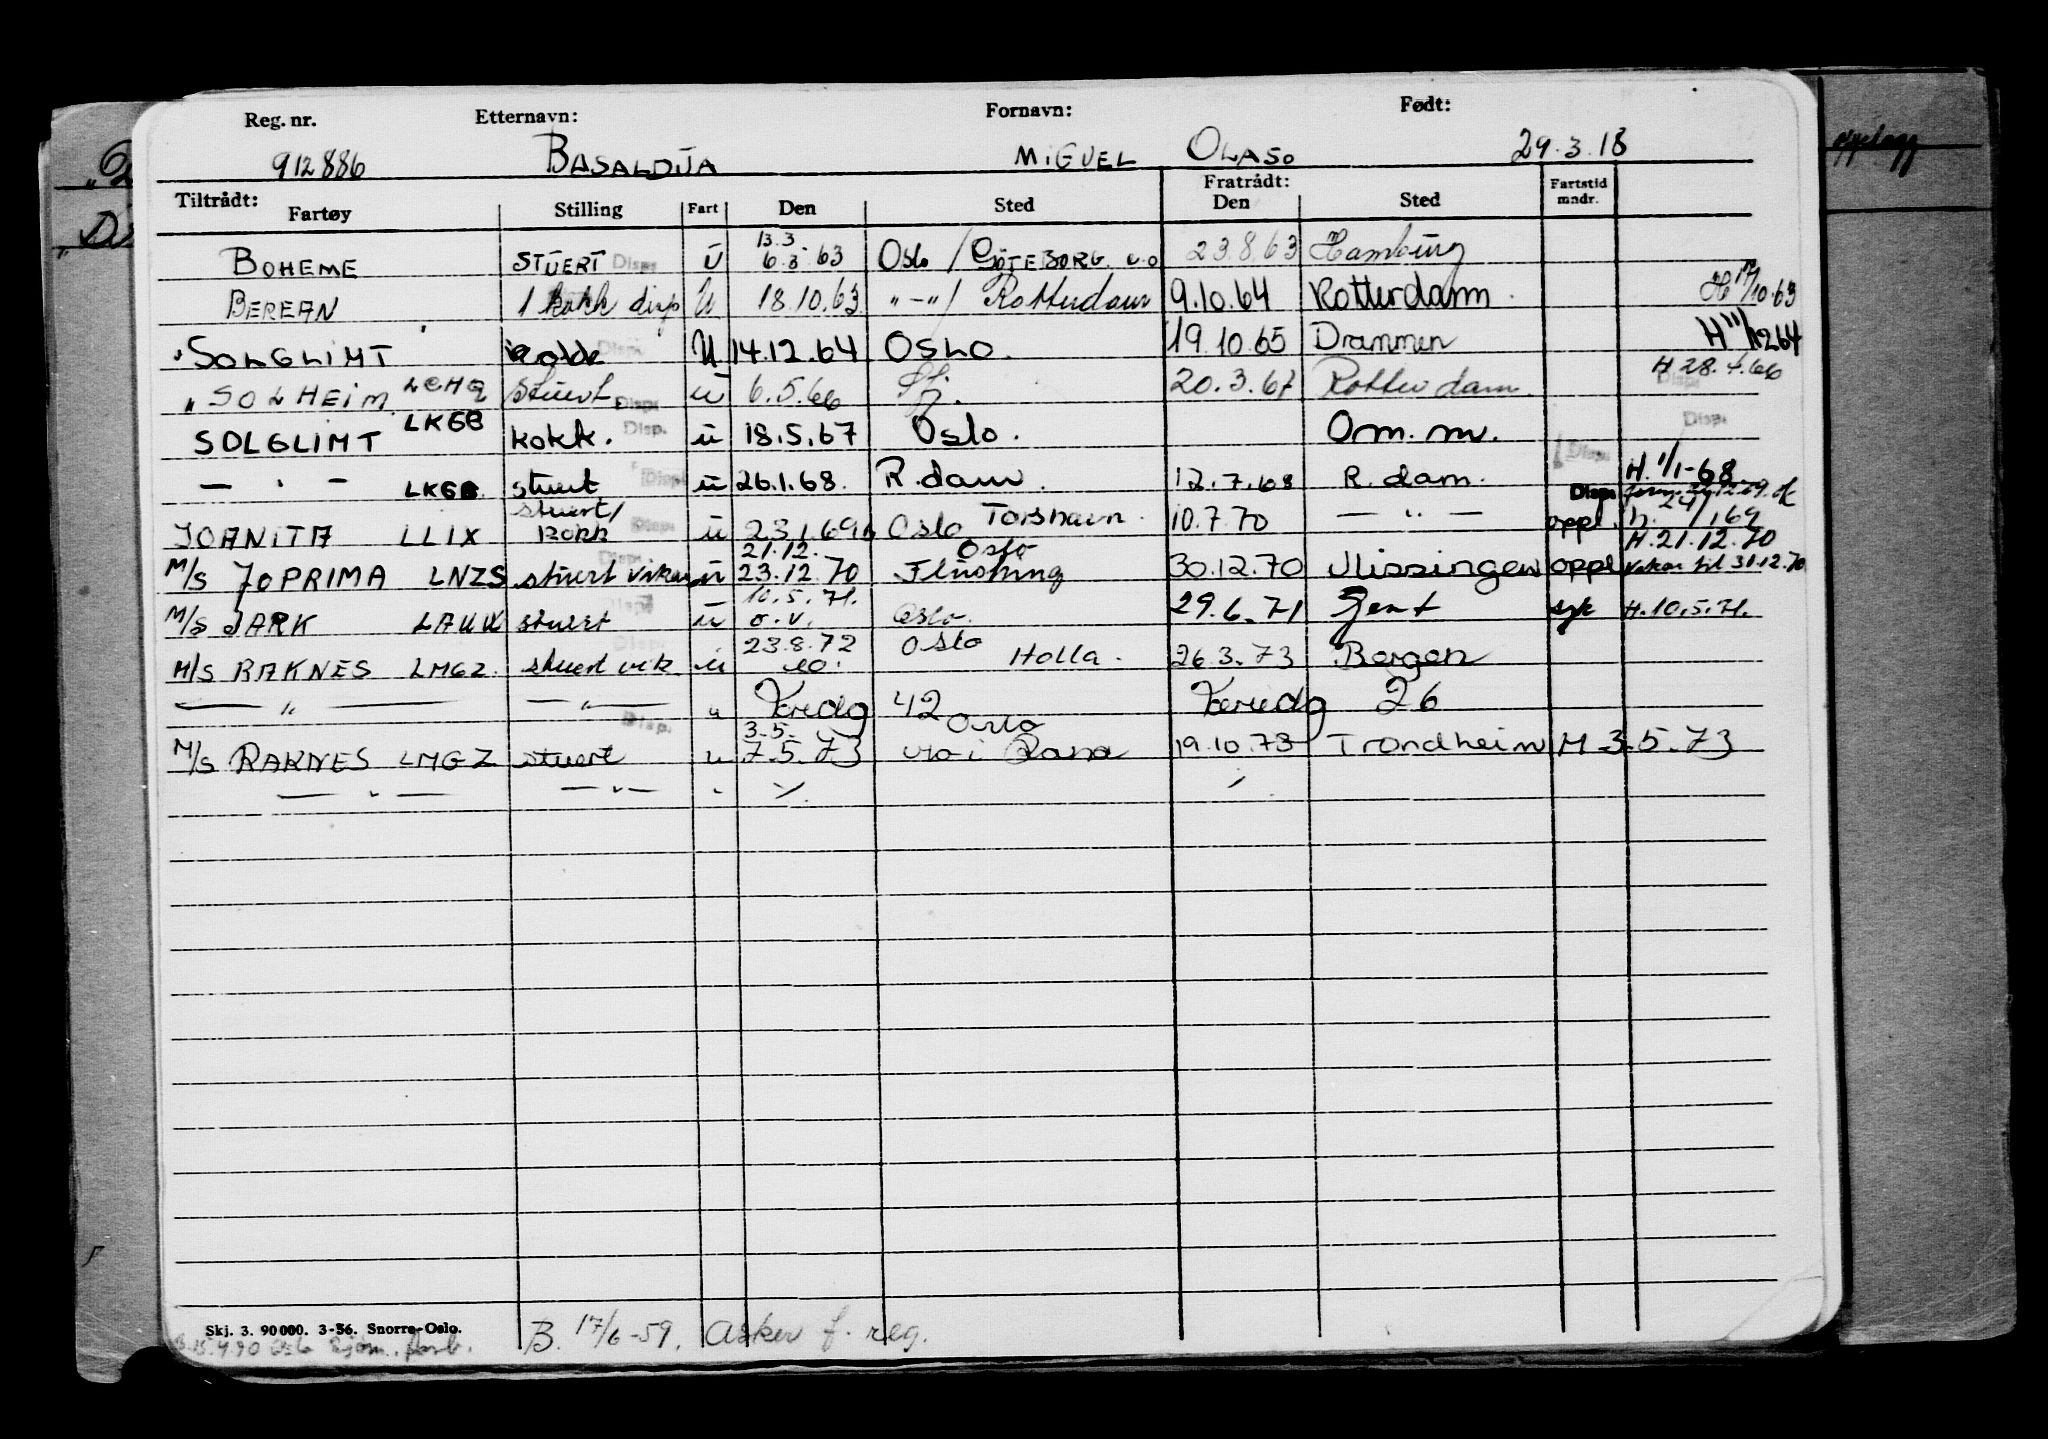 Reg. nr. Etternavn: Fornavn: Født:
912886 BASALDUA MIGUEL OLASO 29.3.18
Tiltrådt: Fratrådt:
Fartøy Stilling Fart Den Sted Den Sted Fartstid mndr.
13.3.
BOHEME STUERT Disp. U 6.3.63 Oslo / GÖTEBORG. 23.8.63 Hamburg
BEREAN 1 kokk disp U 18.10.63 "-" / Rotterdam 9.10.64 Rotterdam H 17/10.63
SOLGLIMT kokk Disp. U 14.12.64 OSLO. 19.10.65 Drammen H 11/12 64
" SOLHEIM LCHQ stuert Disp. u 6.5.66 20.3.67 Rotterdam. H 28.4.66 Disp.
SOLGLIMT LKGB kokk. Disp. u 18.5.67 Oslo. Om. m. Disp.
— " — LKGB stuert Disp. u 26.1.68. R.dam. 12.7.68 R.dam. Disp. H. 1/1-68
JOANITA LLIX stuert/ kokk Disp. u 23.1.69 Oslo Torshavn. 10.7.70 — " — Disp. oppl.
21.12. Oslo H. 21.12.70
M/S JOPRIMA LNZS stuert vikar Disp. u 23.12.70 Flushing 30.12.70 Vlissingen oppl vikar til 31.12.70
10.5.71.
M/S JARK stuert Disp. u o.v. Oslo. 29.6.71 Gent syk H. 10.5.71.
23.8.72 Oslo
M/S RAKNES LMGZ. stuert vik Disp. u Holla. 26.3.73 Bergen
— " — — " — " 42 26
3.5. Oslo
M/S RAKNES LMGZ stuert Disp. u 7.5.73 Mo i Rana 19.10.73 Trondheim H 3.5.73
— " — — " — "
Skj. 3. 90000. 3-56. Snorre-Oslo.
B. 17/6-59. Asker f. reg.